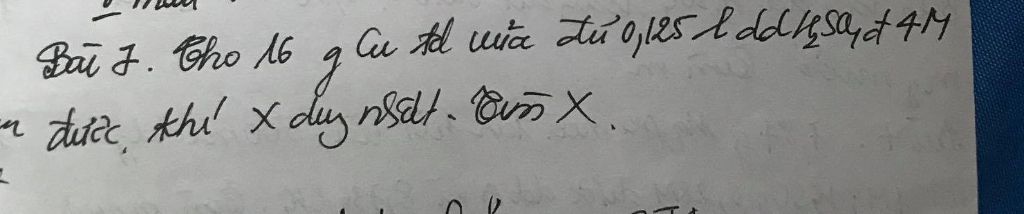 Bài 7. Cho 16 g Cu td vừa đủ 0,125 l dd H2SO4 đ 4M
được khí X duy nhất. Tìm X.